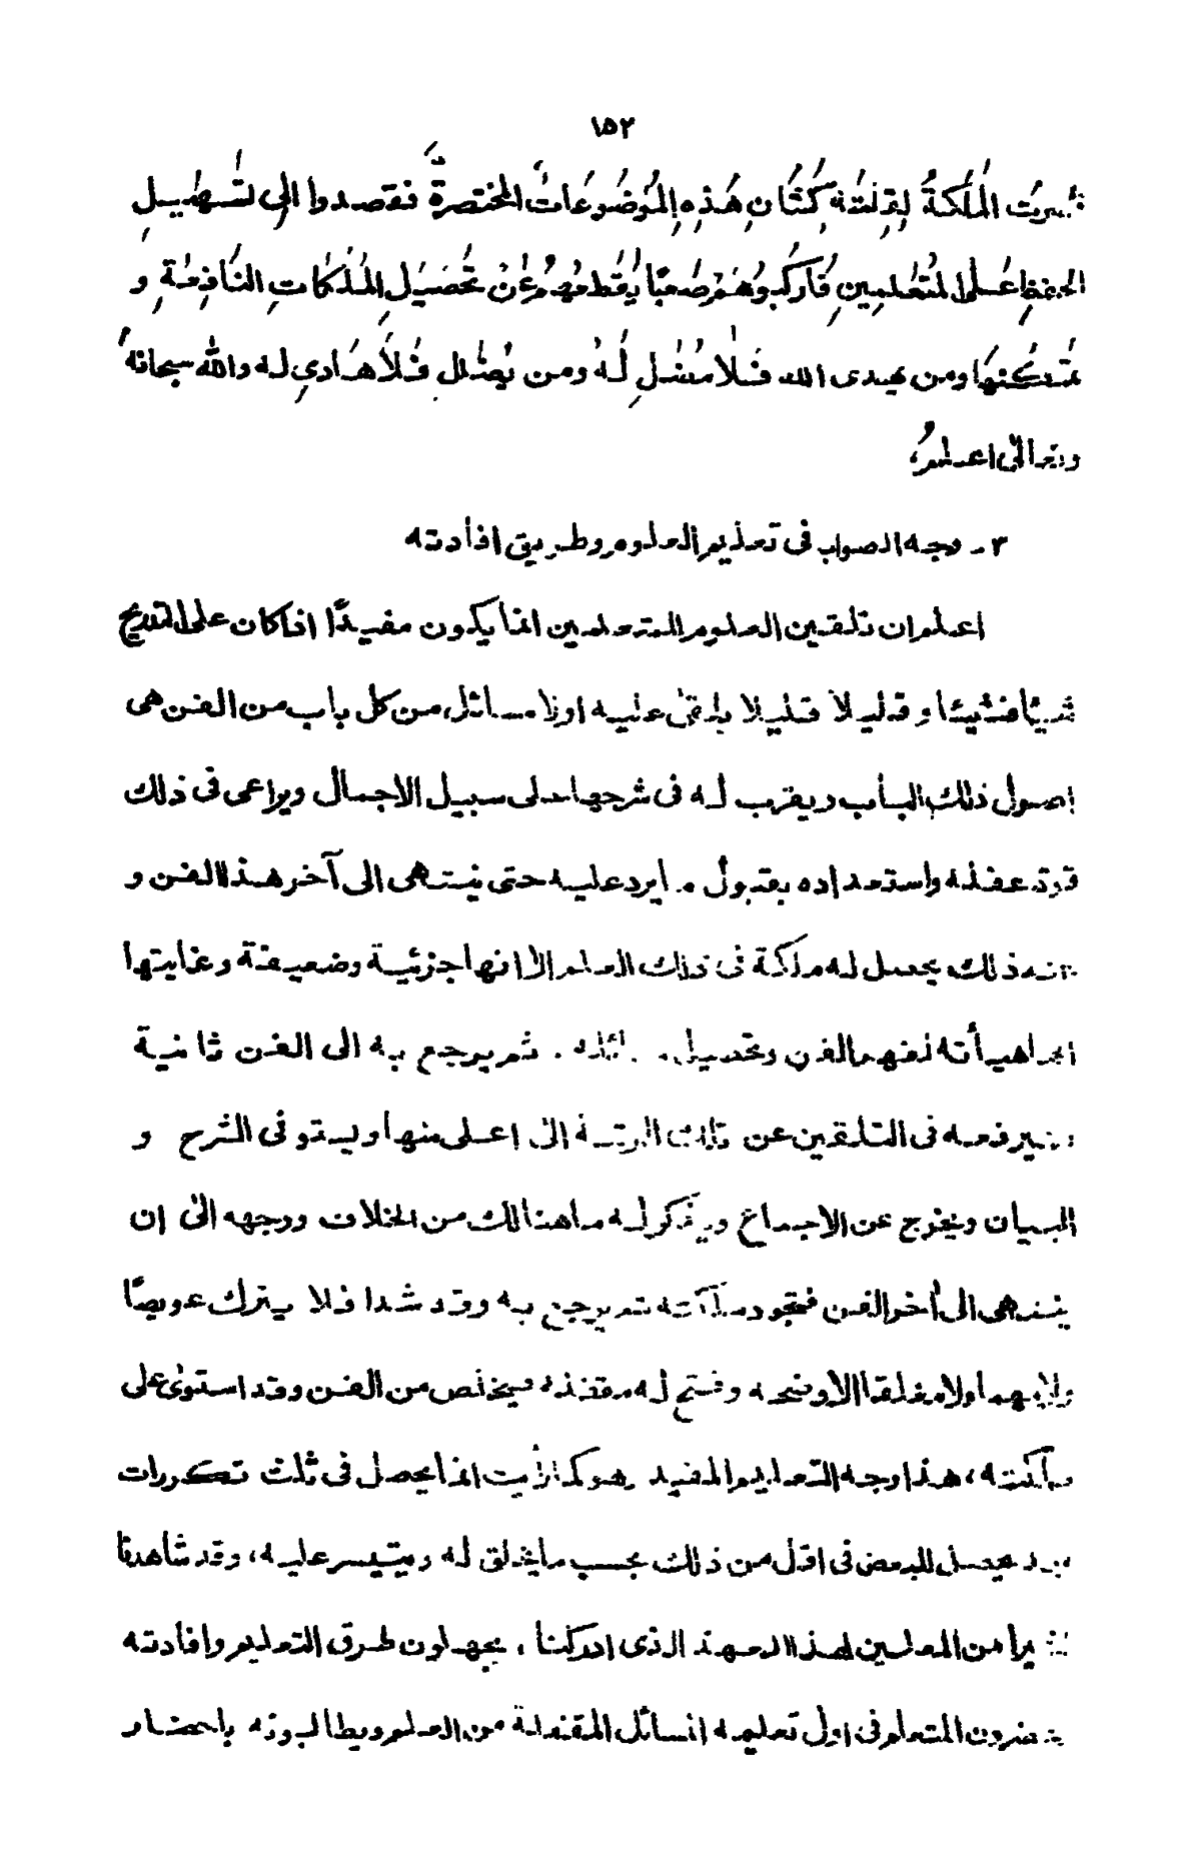 ١٥٢
الْمَلَكَةُ لِقِلَّتِهٖ كَشَانِ هٰذِهِ الْمَوْضُوعَاتِ المختصرة فقصدوا الى تسهيلِ
الحفظِ عَلَى المتعلمينِ فَأَركبوهم صعبًا يقطعهم عن تحصيل الملكات النافعة و
تمكنها ومن يهدى الله فلا مضل له ومن يضلل فلا هادي له والله سبحانه
وتعالىٰ اعلم،
٣ـ وجه الصواب فى تعليم العلوم وطريق افادته
اعلم ان تلقين العلوم للمتعلمين انما يكون مفيدًا اذا كان على التدريج
شيئًا فشيئا وقليلا قليلا يلقىٰ عليه اولا مسائل من كل باب من الفن هى
اصول ذلك الباب ويقرب له فى شرحها على سبيل الاجمال ويراعى فى ذلك
قوة عقله واستعداده بقبول ما يرد عليه حتى ينتهى الى آخر هذا الفن و
عند ذلك يحصل له ملكة فى ذلك العلم الا انها جزئية وضعيفة وغايتها
انها هيأته لفهم الفن وتحصيل مسائله . ثم يرجع به الى الفن ثانية
فيرفعه فى التلقين عن تلك الرتبة الىٰ اعلى منها ويستوفى الشرح و
البيان ويخرج عن الاجماع ويذكر له ما هنالك من الخلاف ووجهه الىٰ ان
ينتهى الى أخر الفن فتجود ملكته ثم يرجع به وقد شدا فلا يترك عويصًا
ولا مبهما ولا مغلقا الا وضحه وفتح له مقفله فيخلص من الفن وقد استوىٰ على
ملكته، هذا وجه التعليم المفيد وهو كما رأيت انما يحصل فى ثلث تكررات
وقد يحصل للبعض فى اقل من ذلك بحسب ما يخلق له ويتيسر عليه، وقد شاهدنا
كثيرا من المعلمين لهذا العهد الذى ادركنا، يجهلون طرق التعليم وافادته
يحضرون المتعلم فى اول تعليمه المسائل المقفلة من العلم ويطالبونه باحضار